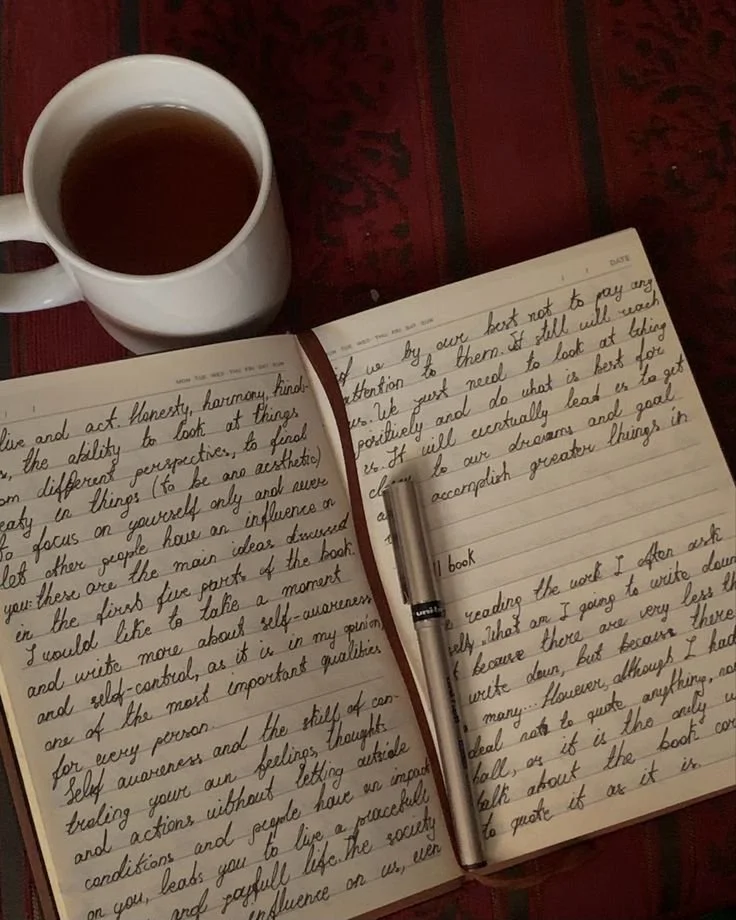 MON TUE WED THU FRI SAT SUN
live and act. Honesty, harmony, kind-
the ability to look at things
different perspectives, to find
in things (to be ano aesthetic)
focus on yourself only and never
let other people have an influence on
you: these are the main ideas discussed
in the first five parts of the book.
I would like to take a moment
and write more about self-awareness
and self-control, as it is in my opinion,
one of the most important qualities
for every person.
Self awareness and the skill of con-
troling your own feelings, thoughts
and actions without letting outside
conditions and people have an impact
on you, leads you to live a pracefull
and joyfull life. The society
influence on us, even
TUE WED THU FRI SAT SUN
DATE
if we by our best not to pay any
attention to them. It still will reach
us. We just need to look at
positively and do what is best for
us. It will eventually lead us to get
to our dreams and goal
accomplish greater things in
book
reading the work I often ask
What am I going to write down
because there are very less
write down, but because there
many... However, although I had
to quote anything,
as it is the only
about the book
to quote it as it is.
uni